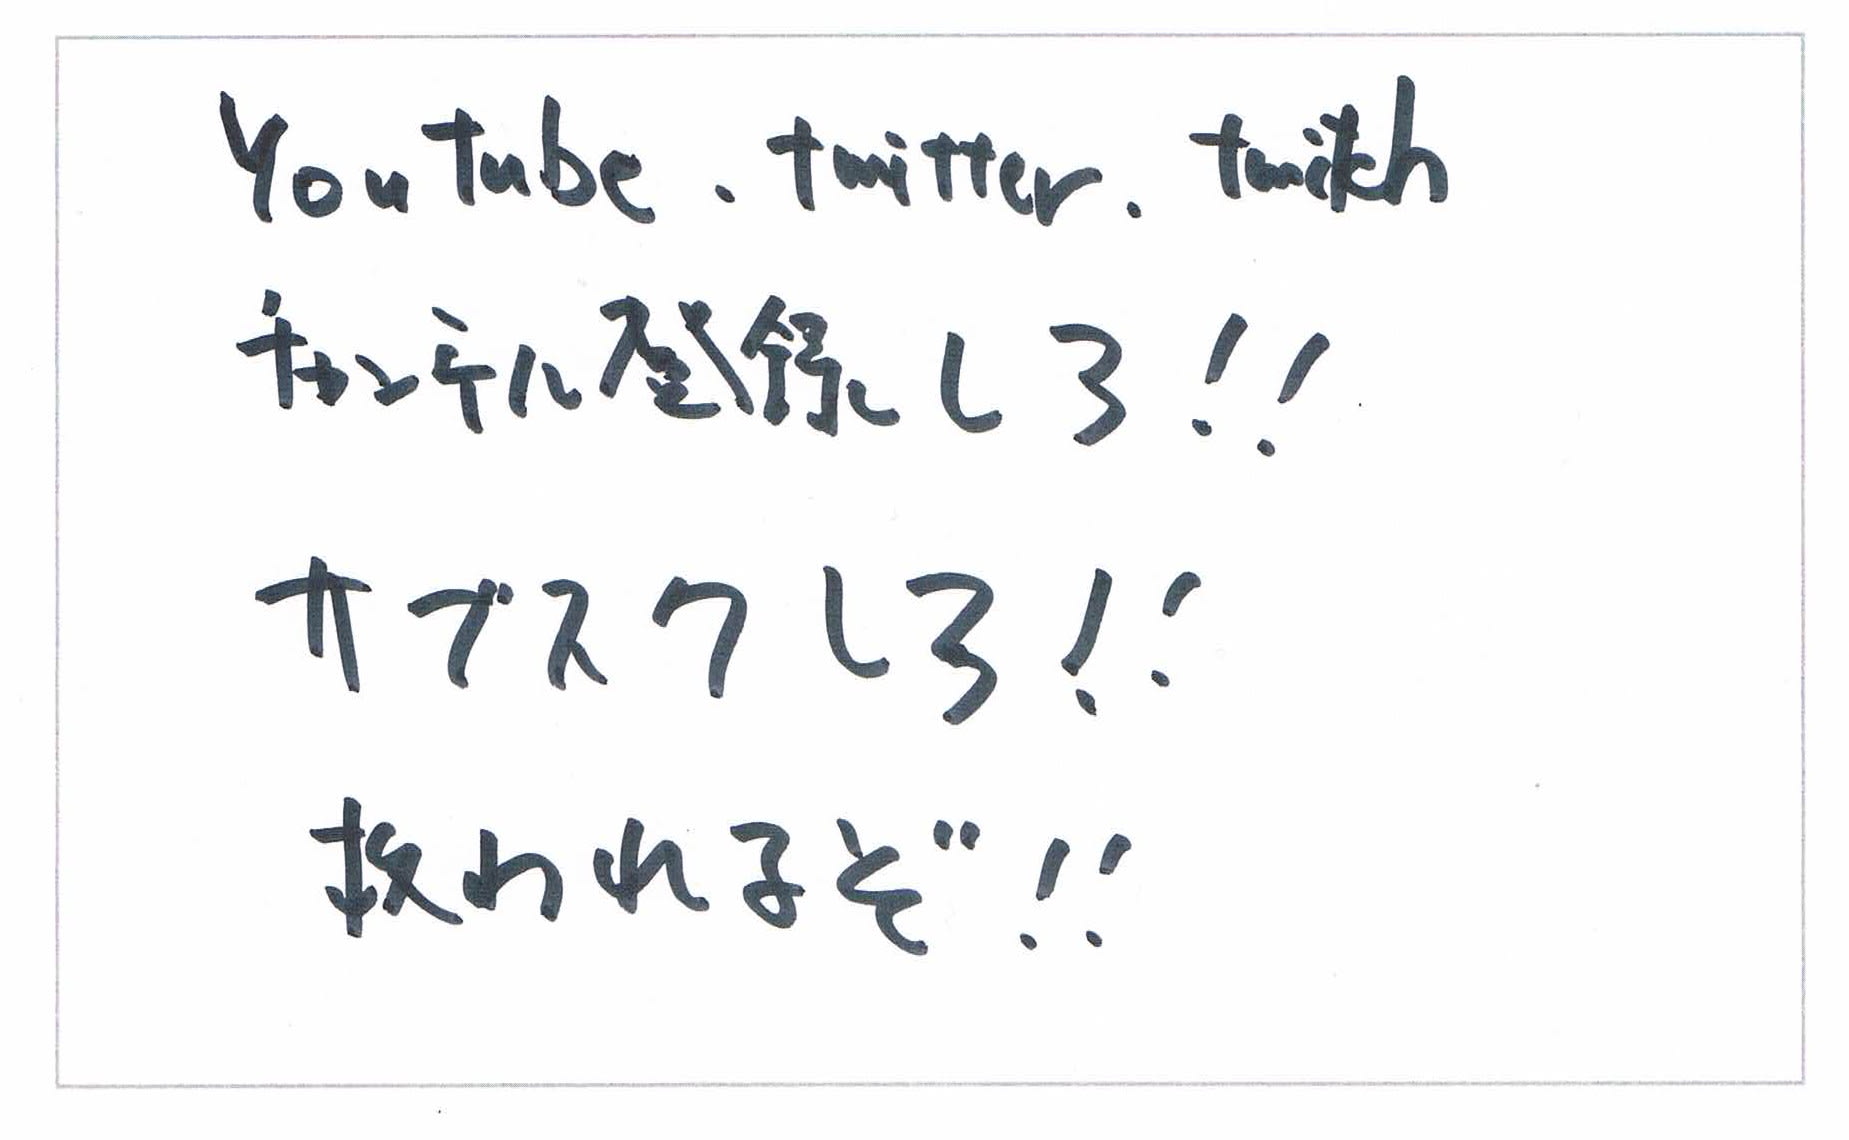 YouTube.twitter.twitch
チャンネル登録しろ!!
サブスクしろ!!
救われるぞ!!